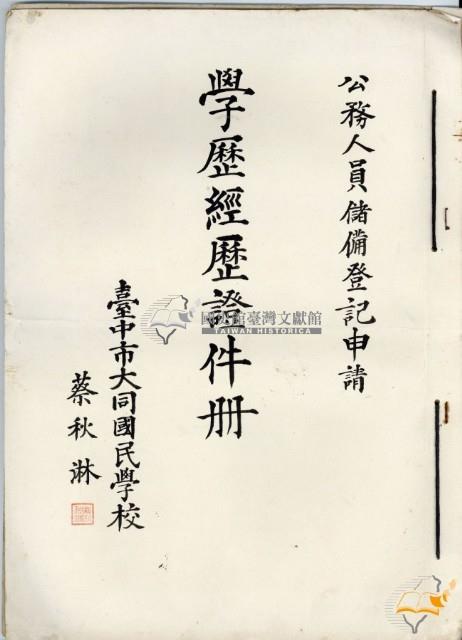 公務人員儲備登記申請
學歷經歷證件冊
臺中市大同國民學校
蔡秋淋
國史館臺灣文獻館
TAIWAN HISTORICA